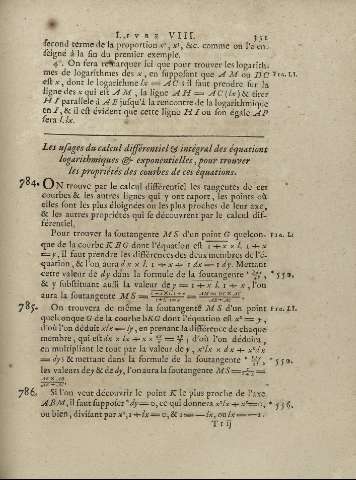 LIVRE VIII. 531
second terme de la proportion xº, x¹, &c. comme on l'a en-
seigné à la fin du premier exemple.
4°. On fera remarquer ici que pour trouver les logarith-
mes de logarithmes des x, en supposant que AM ou DC FIG. LI.
est x, dont le logarithme lx = AC; il faut prendre sur la
ligne des x qui est AM, la ligne AH = AC (lx) & tirer
HI parallele à AE jusqu'à la rencontre de la logarithmique
en I, & il est évident que cette ligne HI ou son égale AP
sera l.lx.
Les usages du calcul différentiel & intégral des équations
logarithmiques & exponentielles, pour trouver
les propriétés des courbes de ces équations.
784. ON trouve par le calcul différentiel les tangentes de ces
courbes & les autres lignes qui y ont raport, les points où
elles sont les plus éloignées ou les plus proches de leur axe,
& les autres propriétés qui se découvrent par le calcul dif-
férentiel.
Pour trouver la soutangente MS d'un point G quelcon- FIG. LI
que de la courbe KBG dont l'équation est 1+x × l. 1+x
= y, il faut prendre les différences des deux membres de l'é-
quation, & l'on aura dx × l. 1+x + 1dx = dy. Mettant
cette valeur de dy dans la formule de la soutangente * 550.
& y substituant aussi la valeur de y = 1+x × l. 1+x, l'on
aura la soutangente MS =
785. On trouvera de même la soutangente MS d'un point FIG. LI.
quelconque G de la courbe hKG dont l'équation est xˣ = y,
d'où l'on déduit xlx = ly, en prenant la différence de chaque
membre, qui est dx × lx + d'où l'on déduira,
en multipliant le tout par la valeur de y, xˣlx × dx + xˣdx
= dy; & mettant dans la formule de la soutangente * 550.
les valeurs de y & de dy, l'on aura la soutangente MS =
786. Si l'on veut découvrir le point K le plus proche de l'axe
ABM, il faut supposer * dy = 0, ce qui donnera xˣlx + xˣ = 0, * 536.
ou bien, divisant par xˣ, 1+lx = 0, & 1 = -lx, ou lx = -1.
T t ij